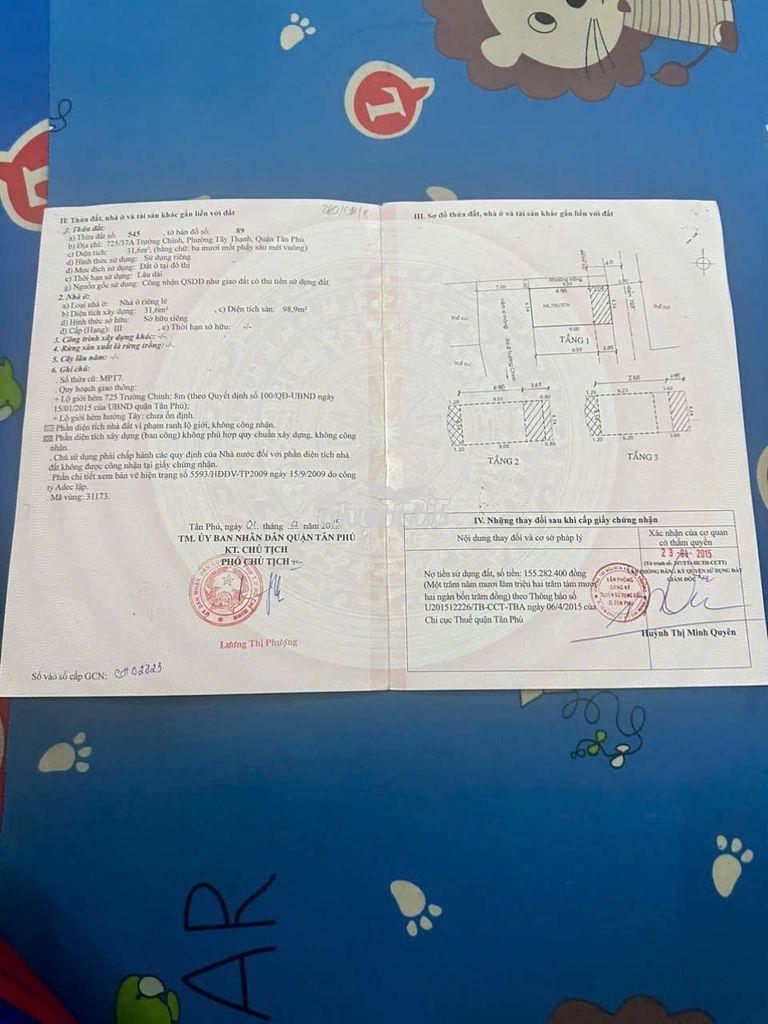 280/UM/K
II: Thửa đất, nhà ở và tài sản khác gắn liền với đất
1. Thửa đất:
a) Thửa đất số: 545, tờ bản đồ số: 89
b) Địa chỉ: 725/37A Trường Chinh, Phường Tây Thạnh, Quận Tân Phú.
c) Diện tích: 31,6m², (bằng chữ: ba mươi mốt phẩy sáu mét vuông)
d) Hình thức sử dụng: Sử dụng riêng
đ) Mục đích sử dụng: Đất ở tại đô thị
e) Thời hạn sử dụng: Lâu dài
g) Nguồn gốc sử dụng: Công nhận QSDĐ như giao đất có thu tiền sử dụng đất
2. Nhà ở:
a) Loại nhà ở: Nhà ở riêng lẻ
b) Diện tích xây dựng: 31,6m² , c) Diện tích sàn: 98,9m²
d) Hình thức sở hữu: Sở hữu riêng
đ) Cấp (Hạng): III , e) Thời hạn sở hữu: -/-
3. Công trình xây dựng khác: -/-
4. Rừng sản xuất là rừng trồng: -/-
5. Cây lâu năm: -/-
6. Ghi chú:
. Số thửa cũ: MPT7.
. Quy hoạch giao thông:
+ Lộ giới hẻm 725 Trường Chinh: 8m (theo Quyết định số 100/QĐ-UBND ngày
15/01/2015 của UBND quận Tân Phú);
+ Lộ giới hẻm hướng Tây: chưa ổn định.
Phần diện tích nhà đất vi phạm ranh lộ giới, không công nhận.
Phần diện tích xây dựng (ban công) không phù hợp quy chuẩn xây dựng, không công
nhận.
. Chủ sử dụng phải chấp hành các quy định của Nhà nước đối với phần diện tích nhà
đất không được công nhận tại giấy chứng nhận.
. Phần chi tiết xem bản vẽ hiện trạng số 5593/HĐĐV-TP2009 ngày 15/9/2009 do công
ty Adec lập.
. Mã vùng: 31173.
Tân Phú, ngày 01 tháng năm 2015
TM. ỦY BAN NHÂN DÂN QUẬN TÂN PHÚ
KT. CHỦ TỊCH
PHÓ CHỦ TỊCH
Lương Thị Phượng
Số vào sổ cấp GCN: CH02723
III. Sơ đồ thửa đất, nhà ở và tài sản khác gắn liền với đất
NS.725/37A
Thổ cư
Thổ cư
Thổ cư
TẦNG 1
TẦNG 2
TẦNG 3
IV. Những thay đổi sau khi cấp giấy chứng nhận
Nội dung thay đổi và cơ sở pháp lý
Xác nhận của cơ quan
có thẩm quyền
Nợ tiền sử dụng đất, số tiền: 155.282.400 đồng
(Một trăm năm mươi lăm triệu hai trăm tám mươi
hai ngàn bốn trăm đồng) theo Thông báo số
U201512226/TB-CCT-TBA ngày 06/4/2015 của
Chi cục Thuế quận Tân Phú
VĂN PHÒNG ĐĂNG KÝ QUYỀN SỬ DỤNG ĐẤT
GIÁM ĐỐC
VĂN PHÒNG
ĐĂNG KÝ
QUYỀN SỬ DỤNG ĐẤT
Q.TÂN PHÚ
Huỳnh Thị Minh Quyên
AR